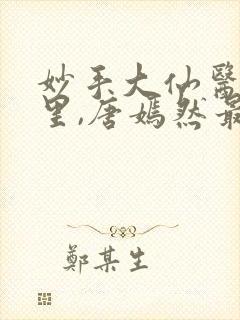 妙手大仙醫
里,唐嫣然最
鄭某生